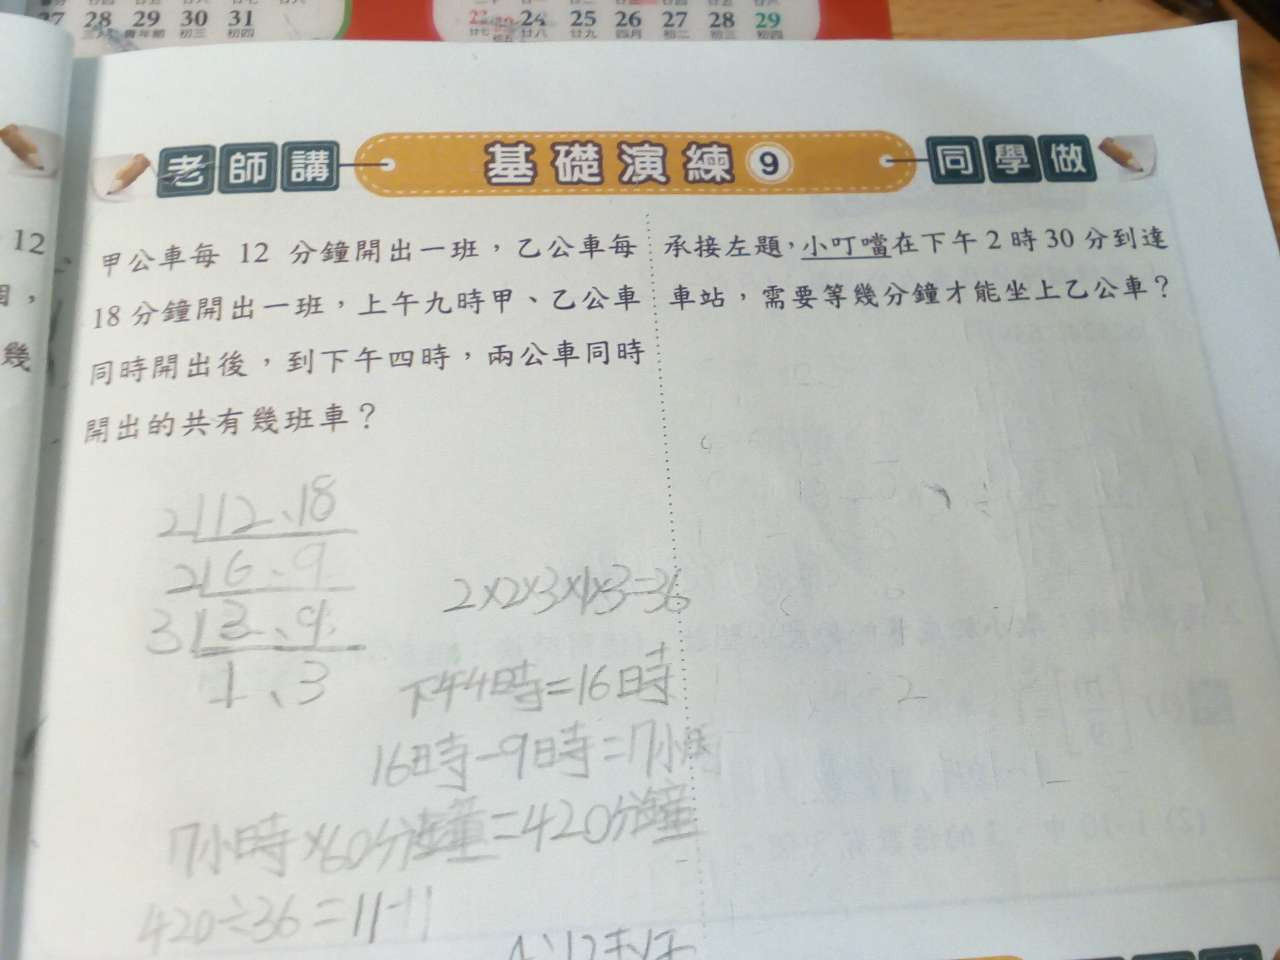 27 28 29 30 31
22 23 24 25 26 27 28 29
青年節 初三 初四
廿七 廿八 廿九 四月 初二 初三 初四
12
，
幾
老師講
基礎演練 9
同學做
甲公車每 12 分鐘開出一班，乙公車每
18 分鐘開出一班，上午九時甲、乙公車
同時開出後，到下午四時，兩公車同時
開出的共有幾班車？
2 12、18
2 6、9
3 3、9
1、3
2×2×3×1×3=36
下午4時=16時
16時-9時=7小時
7小時×60分鐘=420分鐘
420÷36=11-11
承接左題，小叮噹在下午 2 時 30 分到達
車站，需要等幾分鐘才能坐上乙公車？